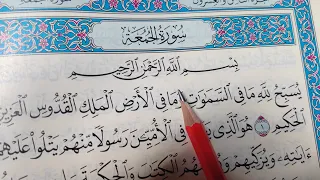 سُورَةُ الجُمُعَة
بِسْمِ اللَّهِ الرَّحْمَٰنِ الرَّحِيمِ
يُسَبِّحُ لِلَّهِ مَا فِي السَّمَٰوَٰتِ وَمَا فِي الْأَرْضِ الْمَلِكِ الْقُدُّوسِ الْعَزِيزِ
الْحَكِيمِ ١ هُوَ الَّذِي بَعَثَ فِي الْأُمِّيِّينَ رَسُولًا مِنْهُمْ يَتْلُوا عَلَيْهِمْ
آيَاتِهِ وَيُزَكِّيهِمْ الْكِتَابَ وَالْحِكْمَةَ